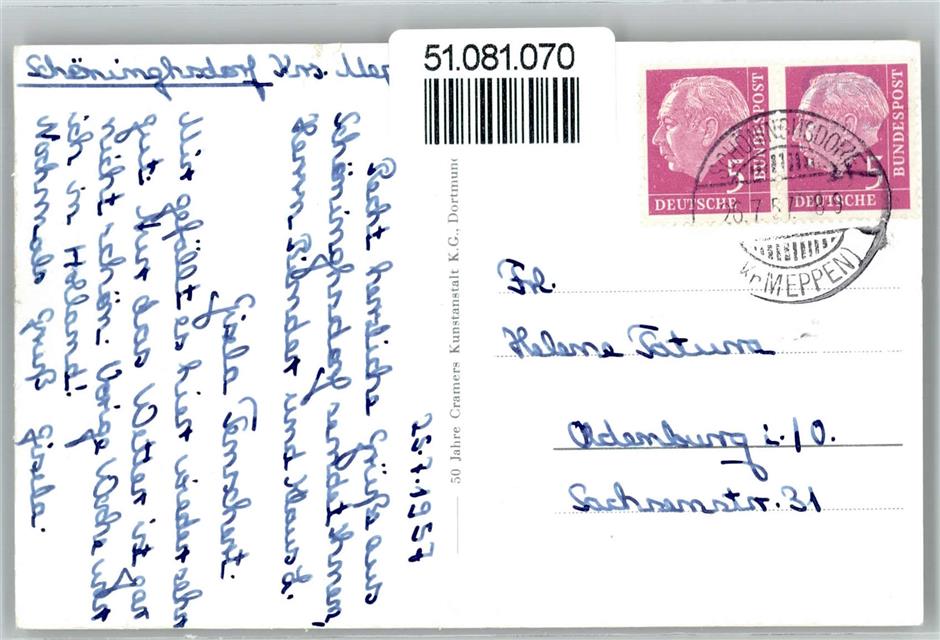 51.081.070
Schöninghsdorf Krs. Mep
22.7.1957
Recht herzliche Grüße aus
Schöninghsdorf sendet Ihnen,
Herrn Bücker und Klaus-D.
Gisela Tensfert.
Mir gefällt es hier wieder sehr
gut. Nur das Wetter ist gar
nicht schön. Vorige Woche war
ich in Holland!
Nochmals Gruß Gisela.
50 Jahre Cramers Kunstanstalt K.G., Dortmund
5
BUNDESPOST
DEUTSCHE
5
BUNDESPOST
DEUTSCHE
SCHÖNINGSDORF
26.7.57.-8-9
(Kr. MEPPEN)
Frl.
Helene Tatura
Oldenburg i./O.
Sachsenstr. 31